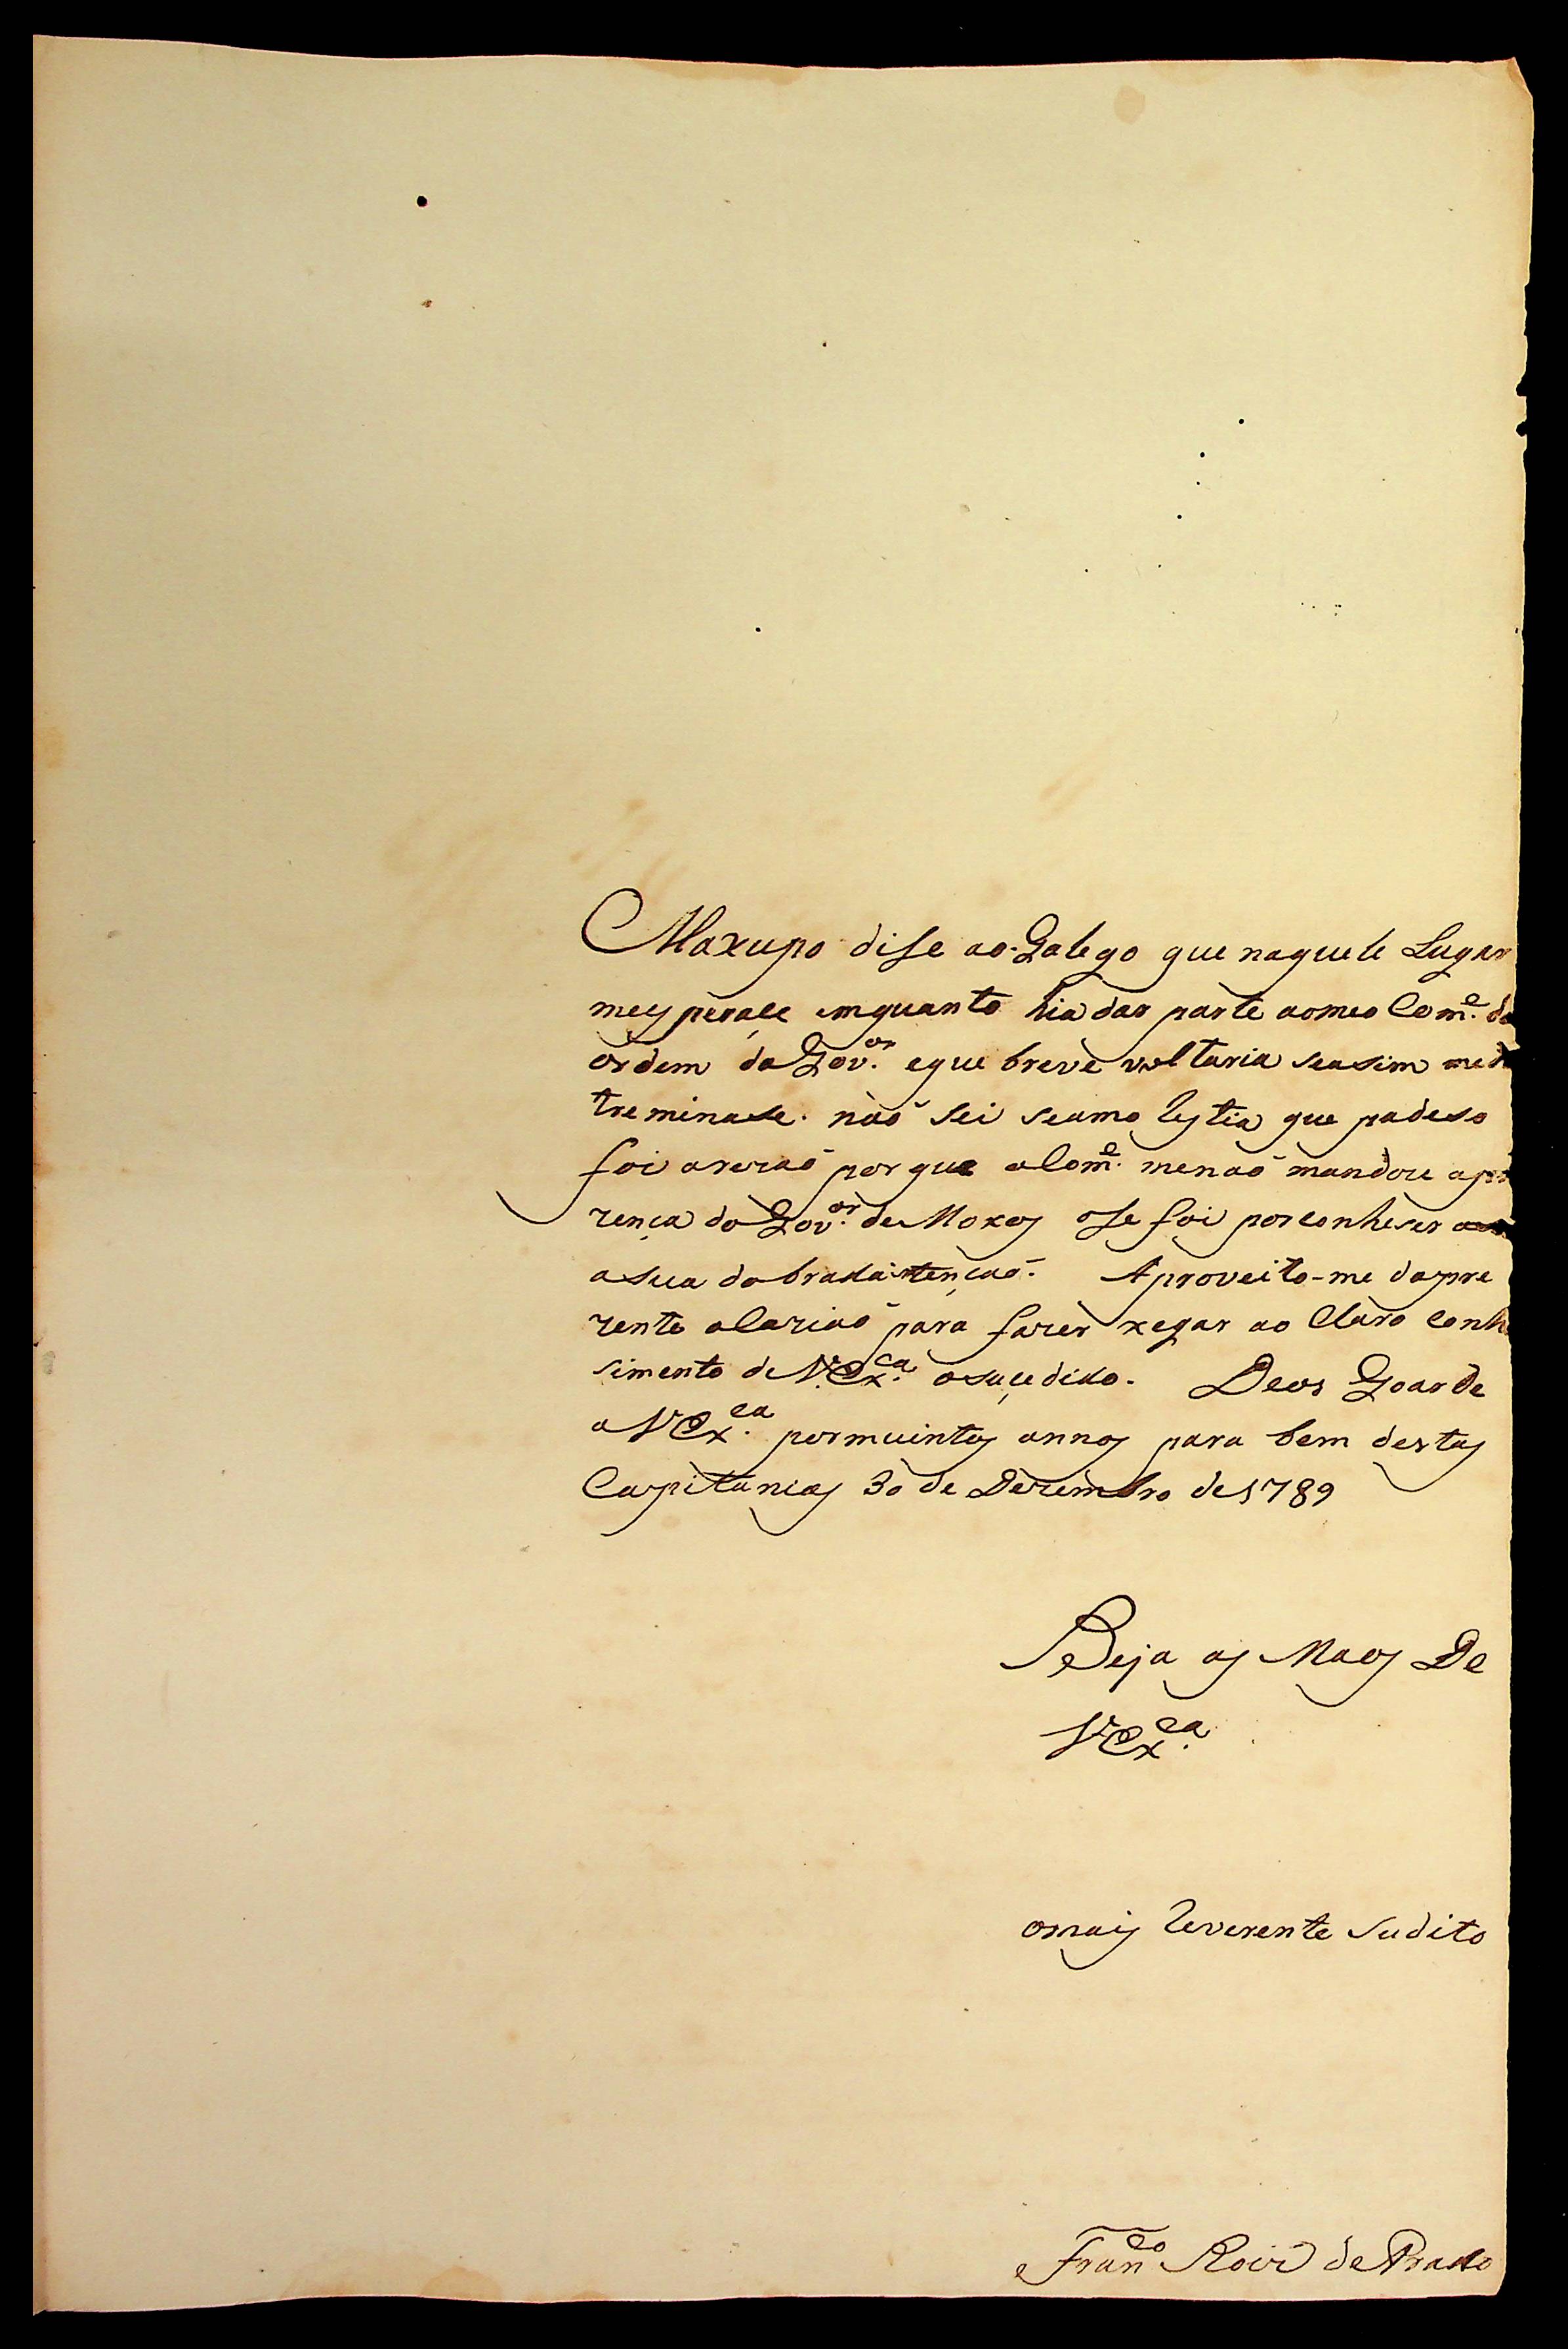 Maxupo dise ao Galego que naquele Lugar
mesperaçe emquanto hia dar parte aomeo Com.e da
ordem do Gov.or eque breve voltaria seasim mede
treminase. naõ sei seamo lestia que padeso
foi arezaõ porque o Com.e menaõ mandou apre
zença do Gov.or de Moxos ose foi porconheser
asua dobrada tençaõ. Aproveito-me dapre
zente ocaziaõ para fazer xegar ao Claro conhe
simento de V. Ex.ca osuçedido. Deos Goarde
a V Ex.ca pormuintos annos para bem destas
Capitanias 30 de Dezembro de 1789
Beja as Maos De
V Ex.ca
omais Reverente Sudito
Fran.co Roiz de Prado